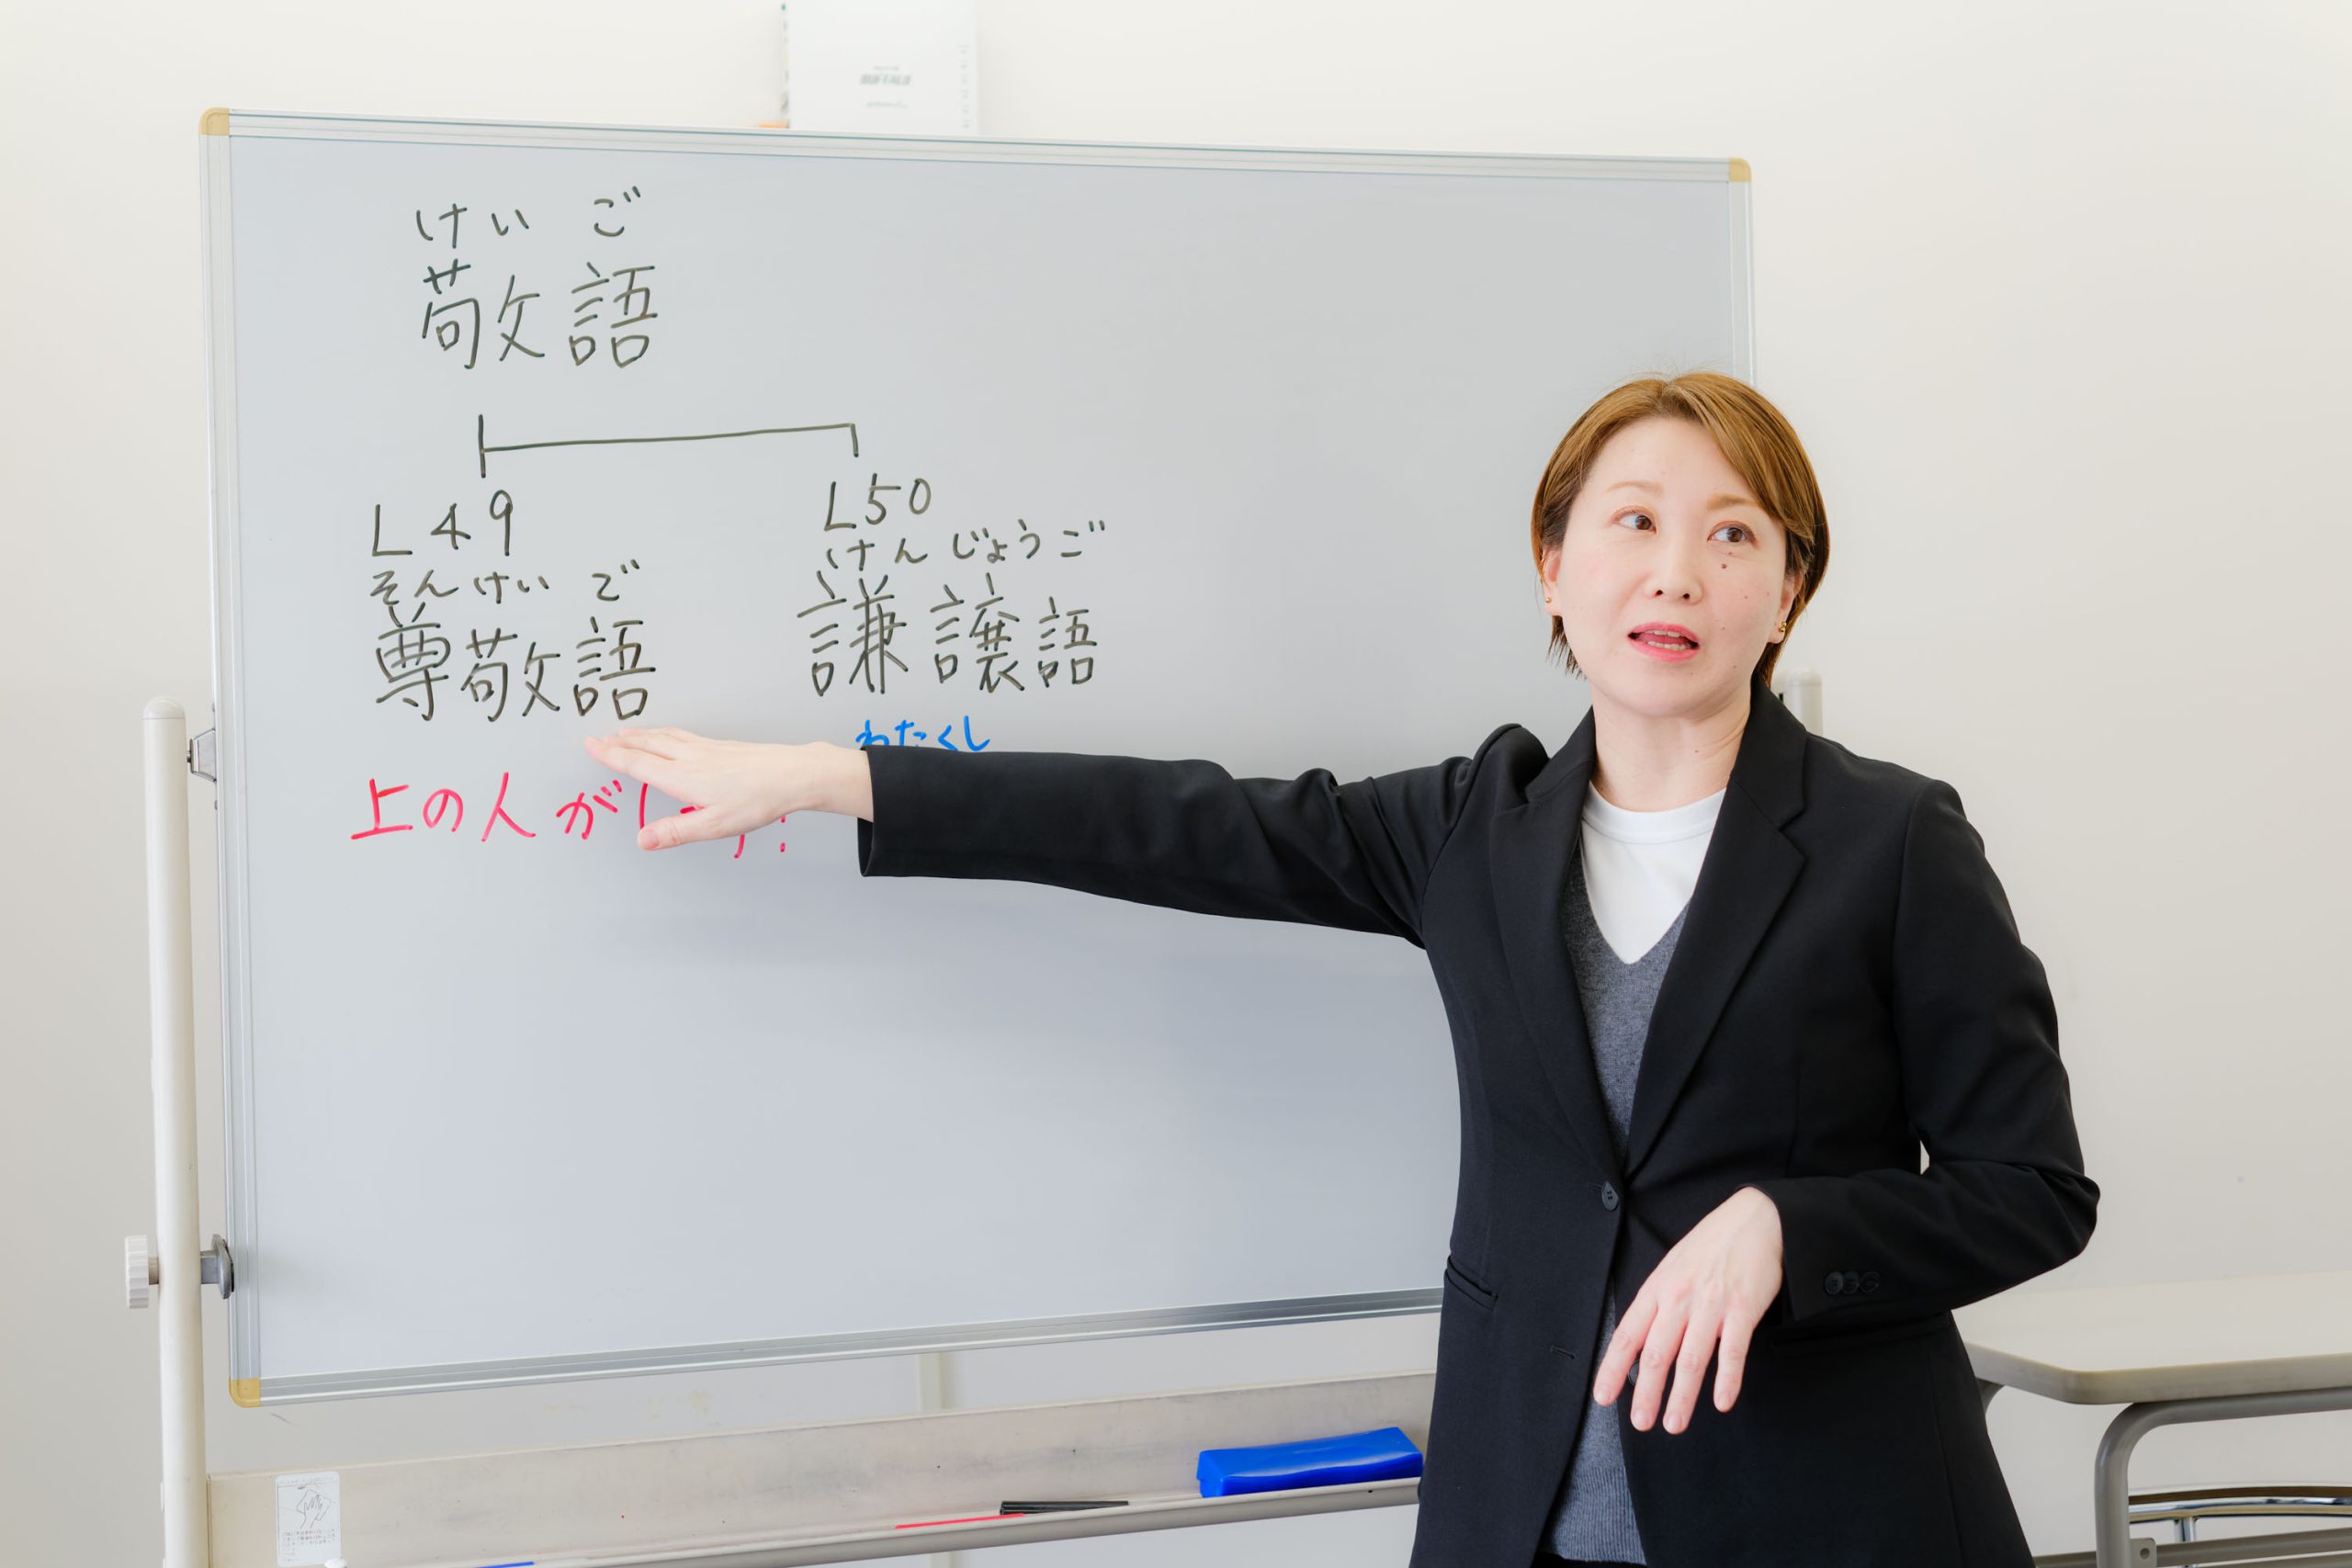 けい ご
敬語
L49
そんけい ご
尊敬語
上の人が
L50
けんじょうご
謙譲語
わたくし
BUFFALO